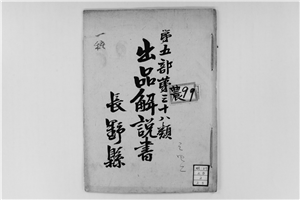 第五部第三十八類
農99
出品解説書
長野縣